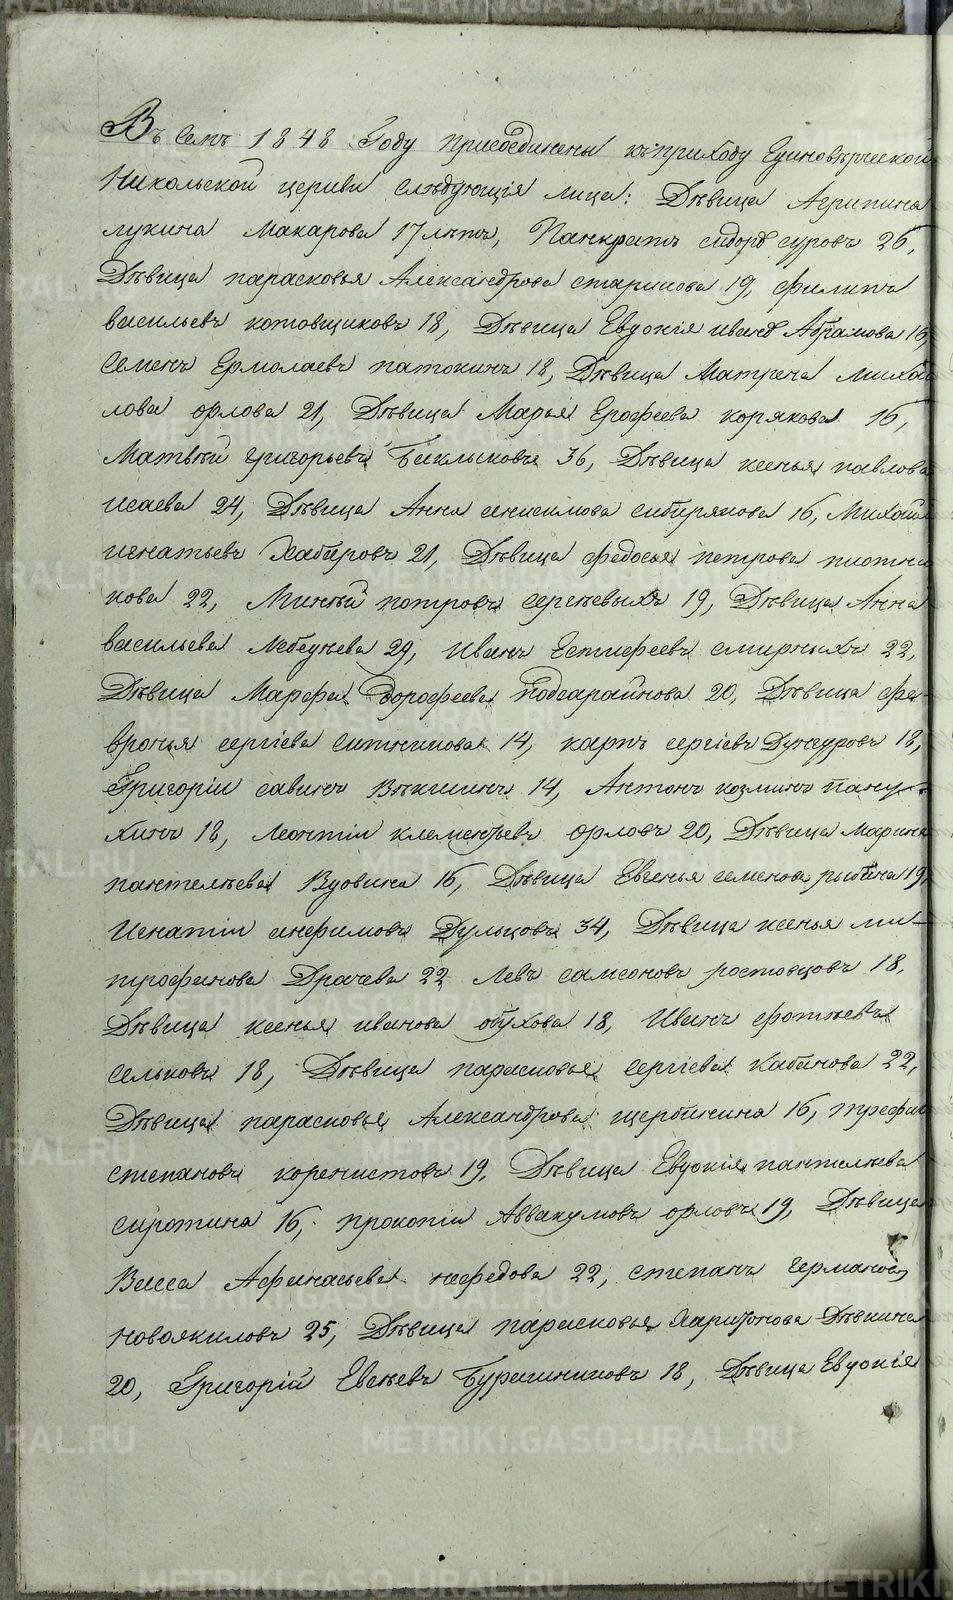 Въ семъ 1848 Году присоединены къ приходу Единовѣрческой
Никольской церкви слѣдующія лица: Дѣвица Агрипина
лукина Макарова 17 лѣтъ, Панкратъ сидоро суровъ 26,
Дѣвица парасковья Александрова старикова 19, филипъ
васильевъ котовщиковъ 18, Дѣвица Евдокія ивано Абрамова 16,
Семенъ Ермолаевъ патокинъ 18, Дѣвица Матрена Михай
лова орлова 21, Дѣвица Марья Ерофеева корякова 16,
Матвѣй григорьевъ 36, Дѣвица ксенья павлова
исаева 24, Дѣвица Анна анисимова сибирякова 16, Михайло
игнатьевъ Хабаровъ 21, Дѣвица федосья петрова плотни
кова 22, Минѣй петровъ сергѣевыхъ 19, Дѣвица Анна
васильева 29, Иванъ Естифеевъ смирныхъ 22,
Дѣвица Марфа Дорофеева 20, Дѣвица фе-
вронья сергіева ситникова 14, карпъ сергіевъ 18,
Григоріи савинъ Вяткинъ 14, Антонъ козминъ пану-
хинъ 18, Леонтіи клементьевъ орловъ 20, Дѣвица Марина
пантелѣева Вдовина 16, Дѣвица Евгенья семенова рыбина 19,
Игнатіи анфимовъ Дульцовъ 34, Дѣвица ксенья ми-
трофанова Драчева 22 Левъ самсоновъ ростовцовъ 18,
Дѣвица ксенья иванова обухова 18, Иванъ фотѣевъ
сельковъ 18, Дѣвица парасковья сергіева Кабанова 22,
Дѣвица парасковья Александрова щербинина 16, трефил
степановъ коренистовъ 19, Дѣвица Евдокія пантелѣева
сиротина 16, прокопіи Аввакумовъ орловъ 19, Дѣвица
Васса Афанасьева нефедова 22, степанъ германов
новоякиловъ 25, Дѣвица парасковья Харитонова Дѣвкина
20, Григорій Евсѣевъ Бурашниковъ 18, Дѣвица Евдокія
METRIKI.GASO-URAL.RU